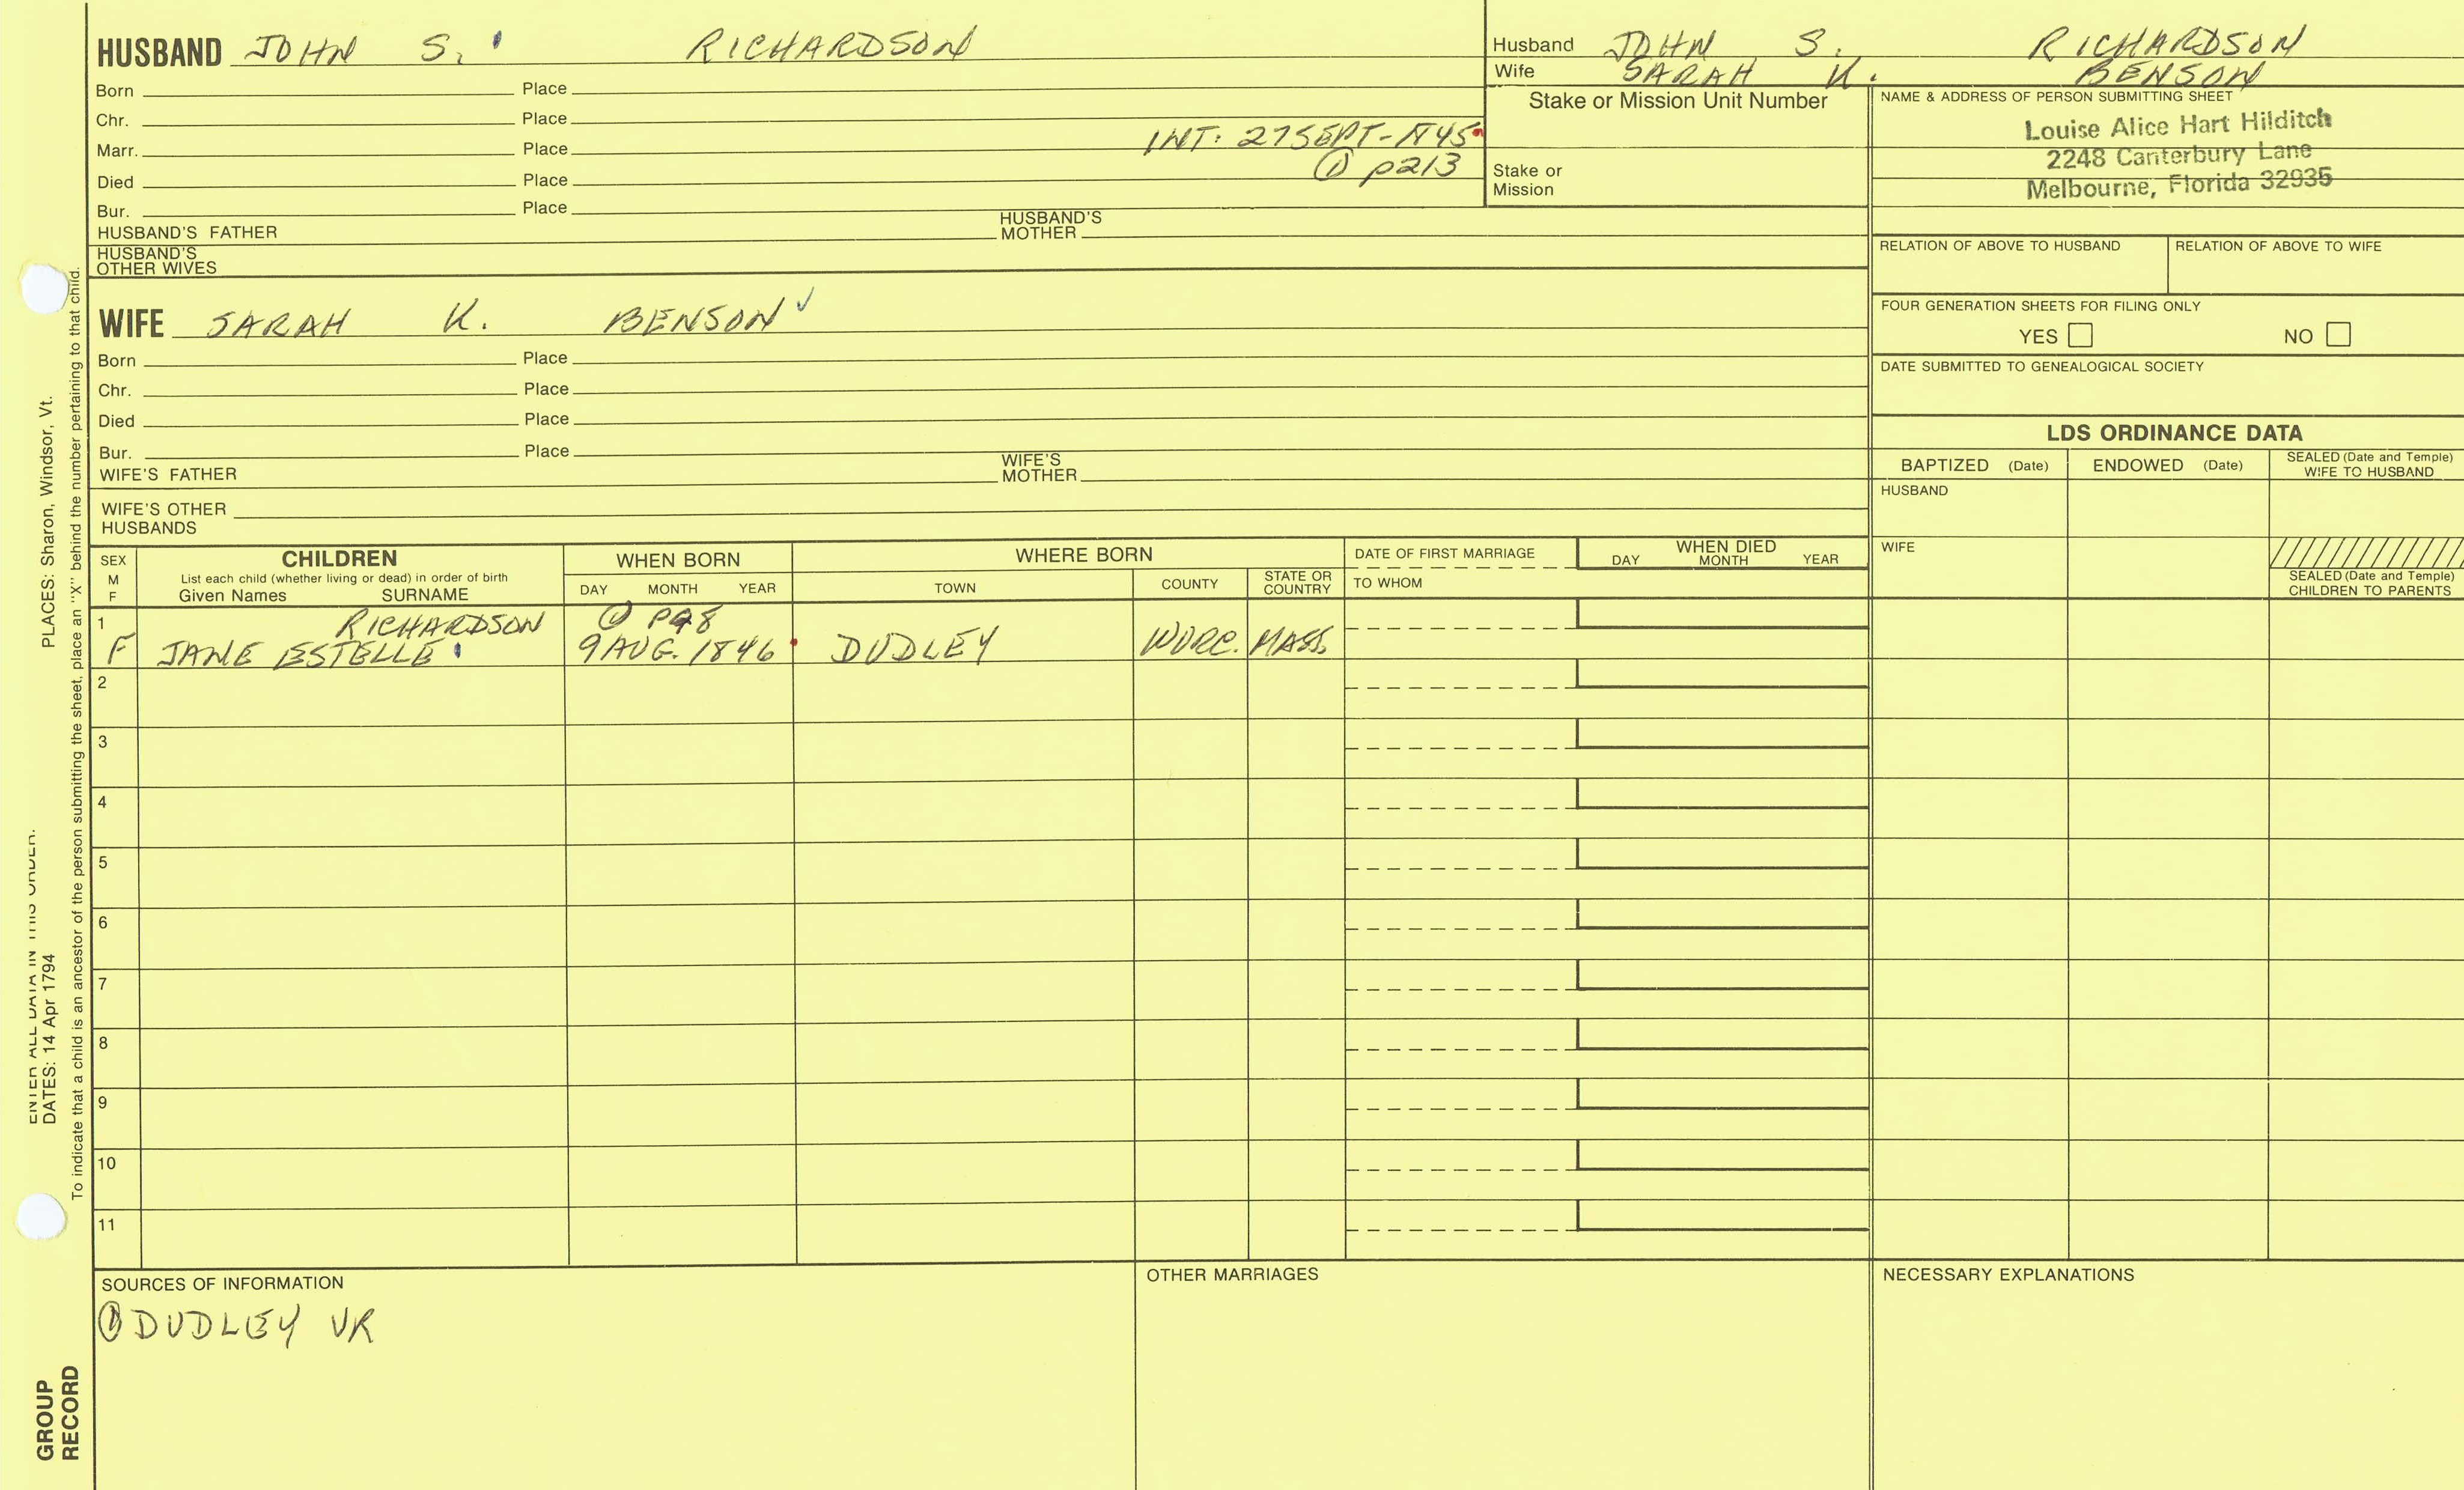 HUSBAND JOHN S. RICHARDSON
Born Place
Chr. Place
Marr. Place INT: 27 SEPT-1845
Died Place ① p213
Bur. Place
HUSBAND'S FATHER HUSBAND'S MOTHER
HUSBAND'S OTHER WIVES
Husband JOHN S. RICHARDSON
Wife SARAH K. BENSON
Stake or Mission Unit Number
Stake or Mission
NAME & ADDRESS OF PERSON SUBMITTING SHEET
Louise Alice Hart Hilditch
2248 Canterbury Lane
Melbourne, Florida 32935
RELATION OF ABOVE TO HUSBAND RELATION OF ABOVE TO WIFE
FOUR GENERATION SHEETS FOR FILING ONLY
YES NO
DATE SUBMITTED TO GENEALOGICAL SOCIETY
WIFE SARAH K. BENSON
Born Place
Chr. Place
Died Place
Bur. Place
WIFE'S FATHER WIFE'S MOTHER
WIFE'S OTHER HUSBANDS
LDS ORDINANCE DATA
BAPTIZED (Date) ENDOWED (Date) SEALED (Date and Temple) WIFE TO HUSBAND
HUSBAND
WIFE
SEALED (Date and Temple) CHILDREN TO PARENTS
SEX M F
CHILDREN
List each child (whether living or dead) in order of birth
Given Names SURNAME
WHEN BORN
DAY MONTH YEAR
WHERE BORN
TOWN COUNTY STATE OR COUNTRY
DATE OF FIRST MARRIAGE
TO WHOM
WHEN DIED
DAY MONTH YEAR
1 RICHARDSON ① P98
F JANE ESTELLE 9 AUG. 1846 DUDLEY WORC. MASS.
2
3
4
5
6
7
8
9
10
11
SOURCES OF INFORMATION
① DUDLEY VR
OTHER MARRIAGES
NECESSARY EXPLANATIONS
ENTER ALL DATA IN THIS ORDER.
DATES: 14 Apr 1794 PLACES: Sharon, Windsor, Vt.
To indicate that a child is an ancestor of the person submitting the sheet, place an "X" behind the number pertaining to that child.
GROUP
RECORD